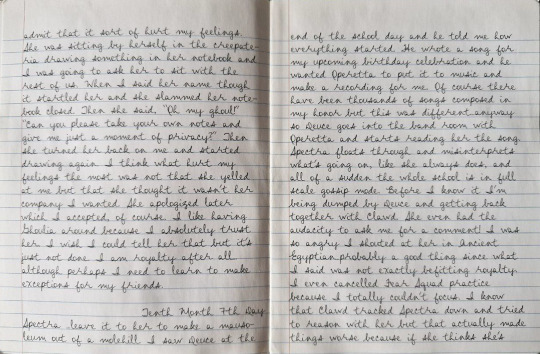 admit that it sort of hurt my feelings.
She was sitting by herself in the creepate-
ria drawing something in her notebook and
I was going to ask her to sit with the
rest of us. When I said her name though
it startled her and she slammed her note-
book closed. Then she said, "Oh my ghoul!"
"Can you please take your own notes and
give me just a moment of privacy?" Then
she turned her back on me and started
drawing again. I think what hurt my
feelings the most was not that she yelled
at me but that she thought it wasn't her
company I wanted. She apologized later
which I accepted, of course. I like having
Ghoulia around because I absolutely trust
her. I wish I could tell her that but it's
just not done. I am royalty after all
although perhaps I need to learn to make
exceptions for my friends.
Tenth Month 7th Day
Spectra leave it to her to make a mauso-
leum out of a molehill. I saw Deuce at the
end of the school day and he told me how
everything started. He wrote a song for
my upcoming birthday celebration and he
wanted Operetta to put it to music and
make a recording for me. Of course there
have been thousands of songs composed in
my honor but this was different anyway
so Deuce goes into the band room with
Operetta and starts reading her the song.
Spectra floats through and misinterprets
what's going on, like she always does, and
all of a sudden the whole school is in full
scale gossip mode. Before I know it I'm
being dumped by Deuce and getting back
together with Clawd. She even had the
audacity to ask me for a comment! I was
so angry I shouted at her in Ancient
Egyptian probably a good thing since what
I said was not exactly befitting royalty.
I even cancelled Fear Squad practice
because I totally couldn't focus. I know
that Clawd tracked Spectra down and tried
to reason with her but that actually made
things worse because if she thinks she's